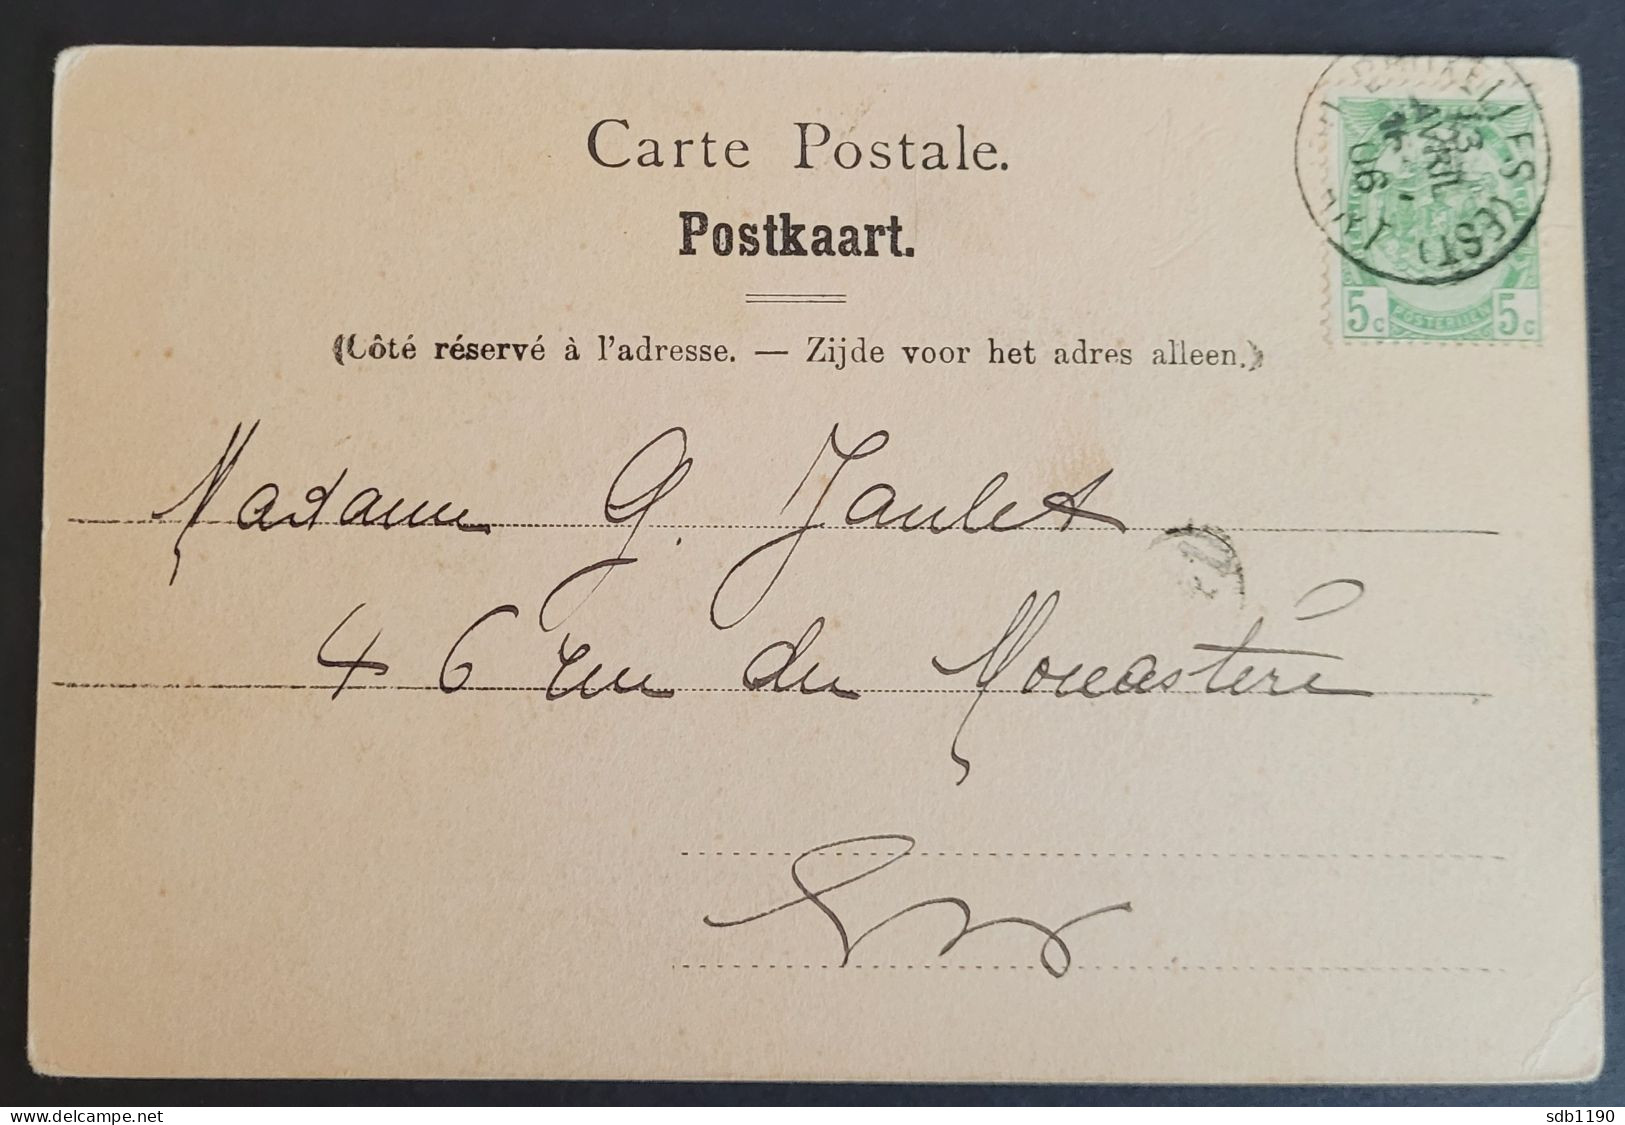 Carte Postale.
Postkaart.
(Côté réservé à l'adresse. — Zijde voor het adres alleen.)
BRUXELLES (EST)
13
AVRIL
06
5c POSTERIJEN 5c
Madame G. Jaulet
46 rue du Monastère
EV
delcampe.net
sdb1190